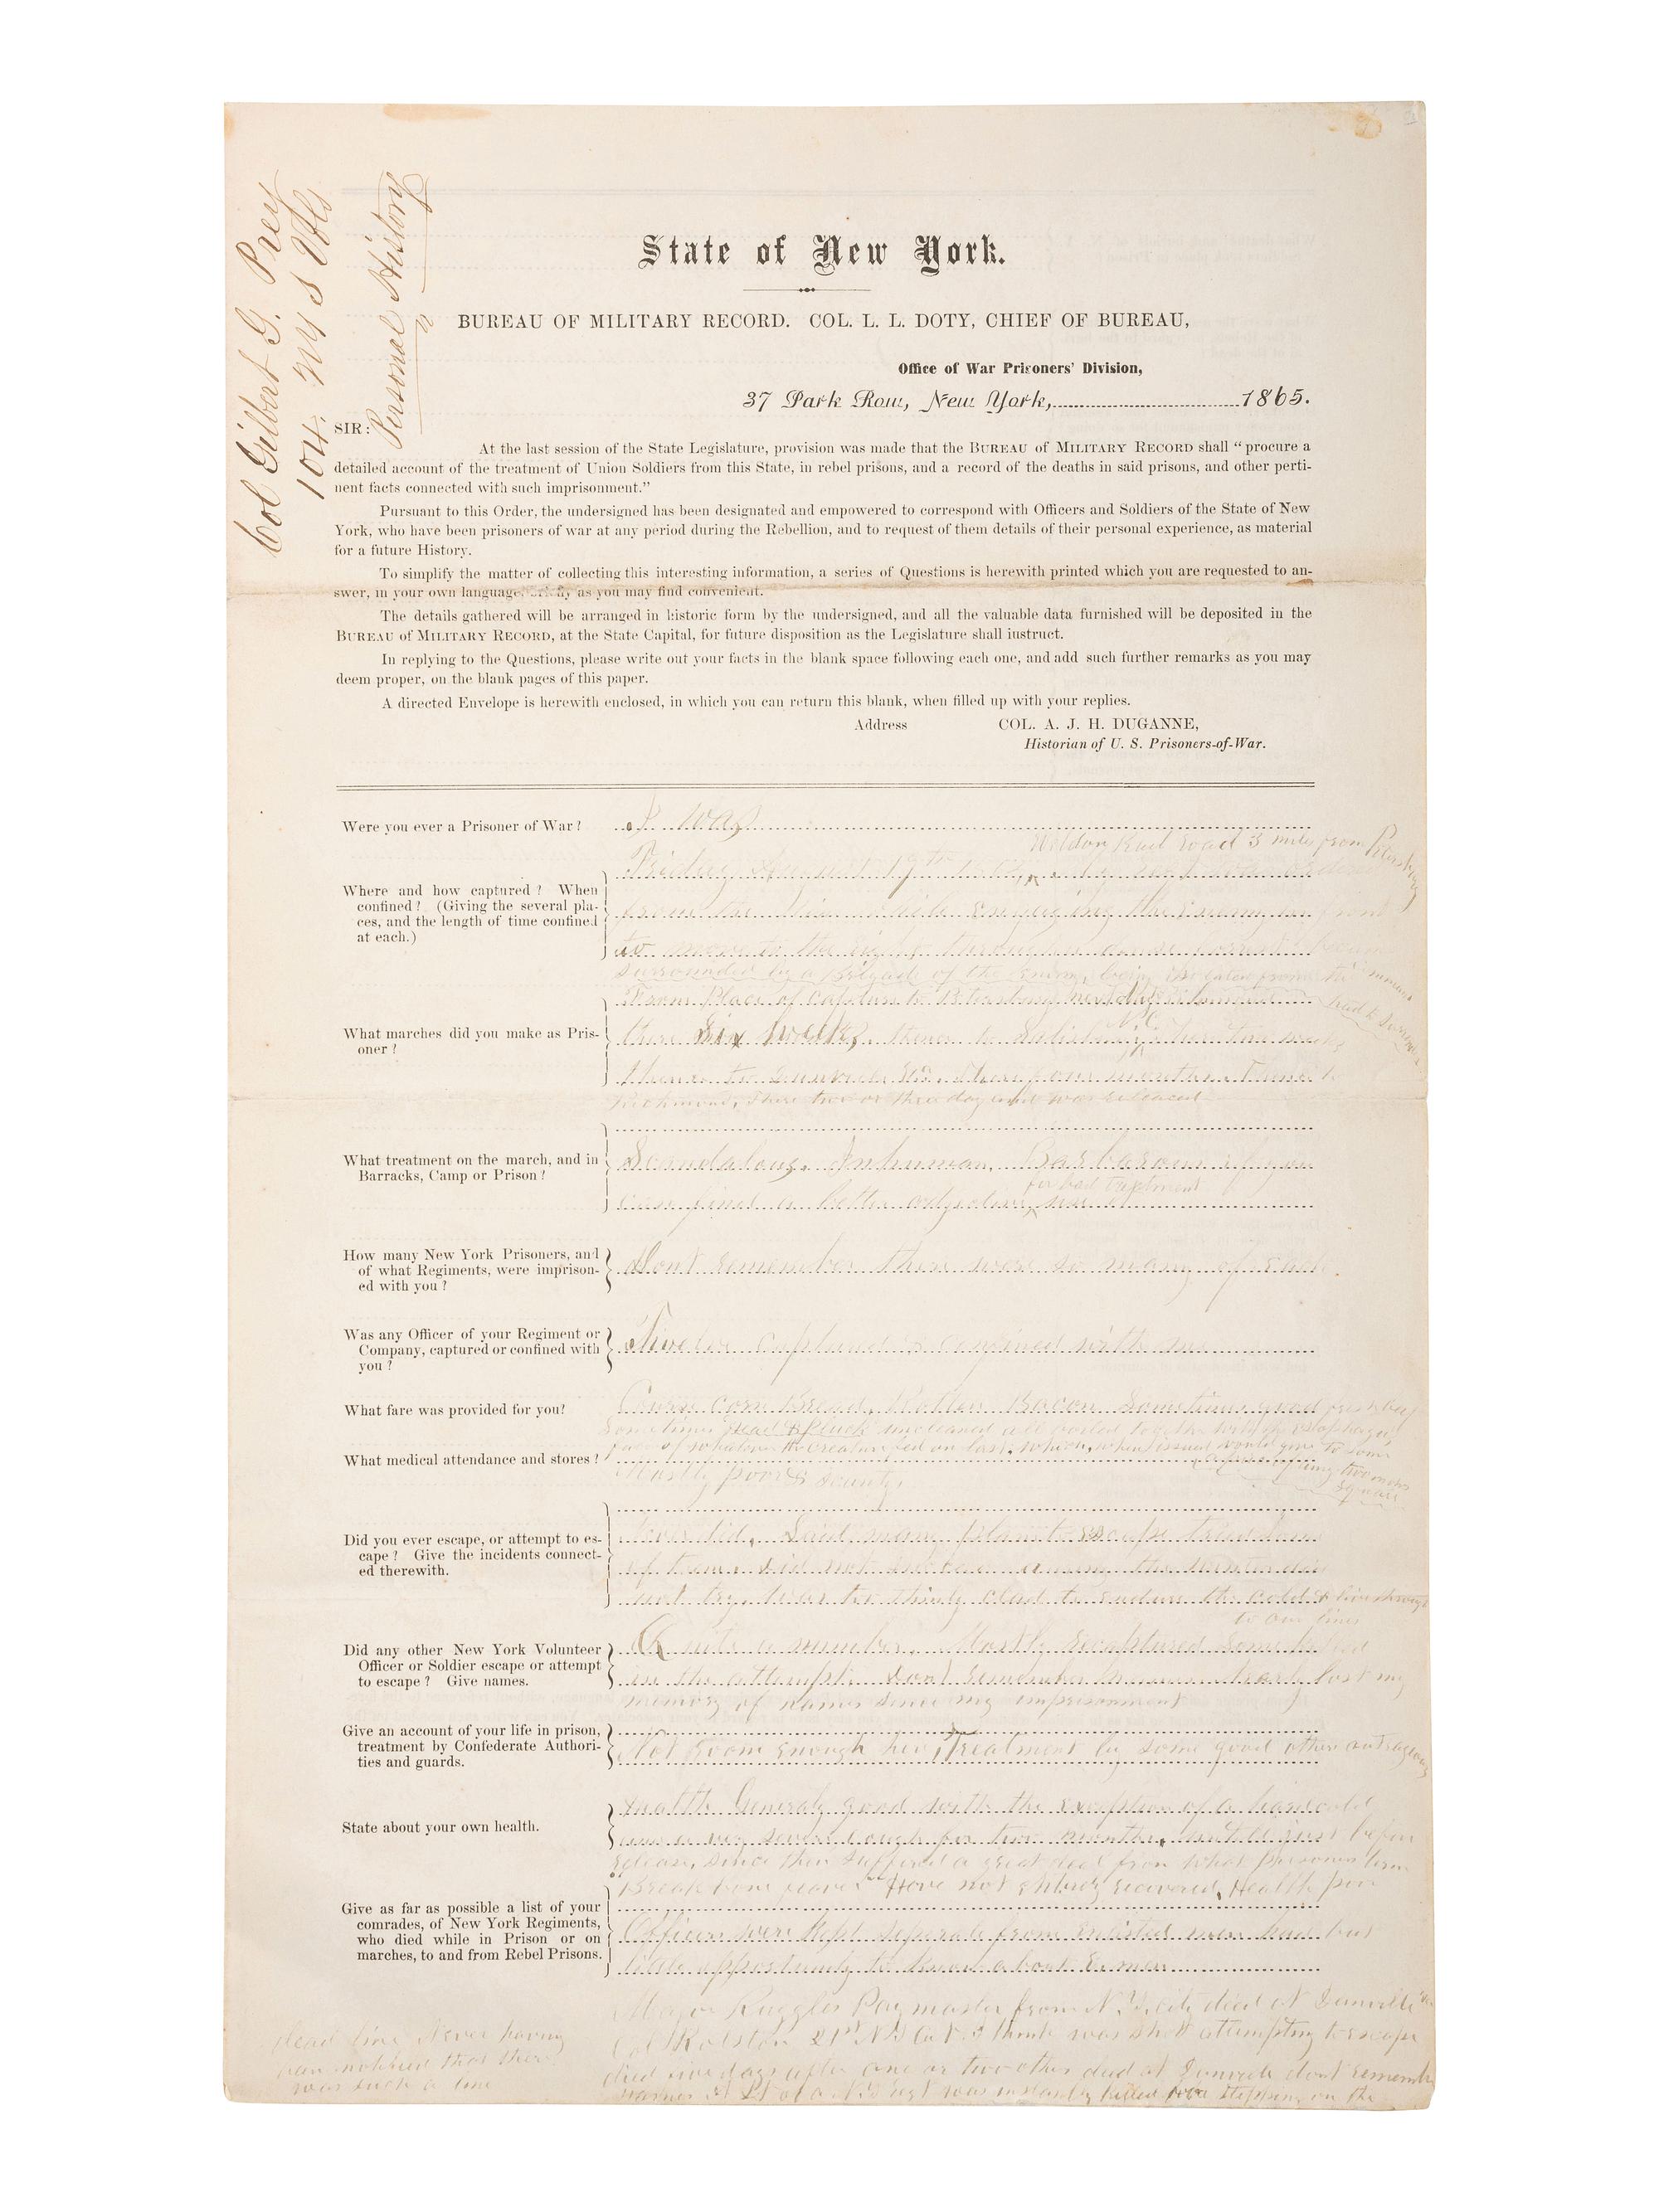 Col Gilbert G. Prey
104. NY S Vols
Personal History
State of New York.
BUREAU OF MILITARY RECORD. COL. L. L. DOTY, CHIEF OF BUREAU,
Office of War Prisoners' Division,
37 Park Row, New York, 1865.
SIR:
At the last session of the State Legislature, provision was made that the BUREAU of MILITARY RECORD shall "procure a
detailed account of the treatment of Union Soldiers from this State, in rebel prisons, and a record of the deaths in said prisons, and other perti-
nent facts connected with such imprisonment."
Pursuant to this Order, the undersigned has been designated and empowered to correspond with Officers and Soldiers of the State of New
York, who have been prisoners of war at any period during the Rebellion, and to request of them details of their personal experience, as material
for a future History.
To simplify the matter of collecting this interesting information, a series of Questions is herewith printed which you are requested to an-
swer, in your own language, as you may find convenient.
The details gathered will be arranged in historic form by the undersigned, and all the valuable data furnished will be deposited in the
BUREAU of MILITARY RECORD, at the State Capital, for future disposition as the Legislature shall instruct.
In replying to the Questions, please write out your facts in the blank space following each one, and add such further remarks as you may
deem proper, on the blank pages of this paper.
A directed Envelope is herewith enclosed, in which you can return this blank, when filled up with your replies.
Address COL. A. J. H. DUGANNE,
Historian of U. S. Prisoners-of-War.
Were you ever a Prisoner of War? I was
Weldon Rail Road 3 miles from Petersburg
Where and how captured? When
confined? (Giving the several pla-
ces, and the length of time confined
at each.)
Friday August 19th 1864, ordered
from the line while engaging the enemy in front
to move to the right through a dense forrest
surrounded by a Brigade of the enemy, being the command
had to surrender
What marches did you make as Pris-
oner?
From Place of Capture to Petersburg next day to
there Six weeks, thence to Salisbury N.C. there two weeks
thence to Danville Va. there four months. Thence to
Richmond, there two or three days and was released
What treatment on the march, and in
Barracks, Camp or Prison?
Scandalous. Inhuman, Barbarous if you
can find a better adjective for bad treatment use it
How many New York Prisoners, and
of what Regiments, were imprison-
ed with you?
Dont remember there were so many of each.
Was any Officer of your Regiment or
Company, captured or confined with
you?
Twelve captured & confined with me
What fare was provided for you?
Corn Bread, Rotten Bacon Sometimes good
Sometimes Head & pluck uncleaned all boiled together with the
of whatever the creature fed on last, which, when issued would give to some
a piece of lung two inches
square
What medical attendance and stores?
Mostly poor & scanty,
Did you ever escape, or attempt to es-
cape? Give the incidents connect-
ed therewith.
Never did. Laid many plans to escape
of them. Did not succeed during the winter did
not try. Was too thinly clad to endure the cold & live through
to our lines
Did any other New York Volunteer
Officer or Soldier escape or attempt
to escape? Give names.
Quite a number. Mostly recaptured some killed
in the attempt. Dont remember names. Nearly lost my
memory of names since my imprisonment
Give an account of your life in prison,
treatment by Confederate Authori-
ties and guards.
Not room enough here, Treatment by some good others outrageous
State about your own health.
Health Generaly good with the exception of a hard cold
and a very severe cough for two months, until just before
release, since then suffered a great deal from what physicians term
"Break bone fever" Have not entirely recovered, Health poor
Give as far as possible a list of your
comrades, of New York Regiments,
who died while in Prison or on
marches, to and from Rebel Prisons.
Officers were kept seperate from enlisted men had but
little opportunity to know about E. men
Major Ruggles Paymaster from N.Y. city died at Danville Va
Col Rolston I think was shot attempting to escape
died five days after one or two others died at Danville dont remember
names A Lt of a N.Y. Regt was instantly killed for stepping on the
dead line Never having
been notified that there
was such a line